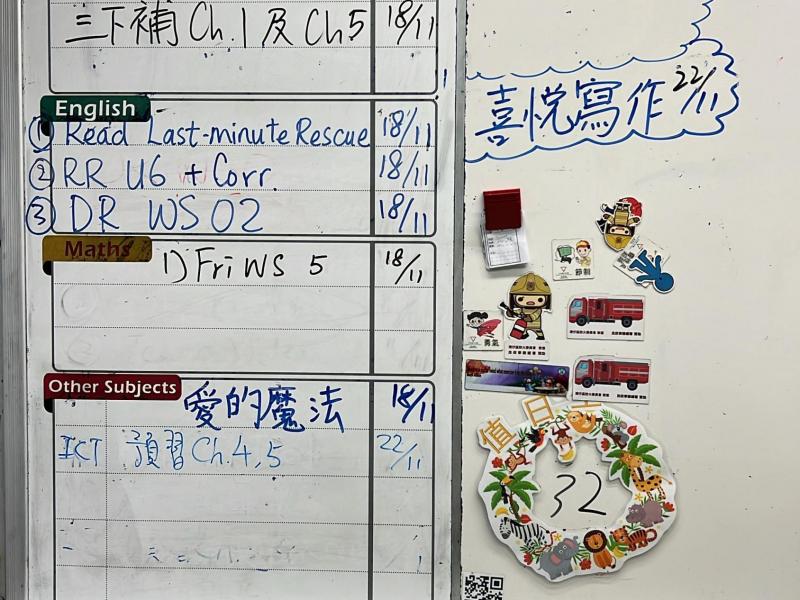 三下補 Ch.1 及 Ch5 18/11
English
① Read Last-minute Rescue 18/11
② RR U6 + Corr. 18/11
③ DR WS 02 18/11
Maths
1) Fri WS 5 18/11
Other Subjects
愛的魔法 18/11
ICT 預習 Ch.4,5 22/11
喜悅寫作 22/11
節制
勇氣
值日生
32